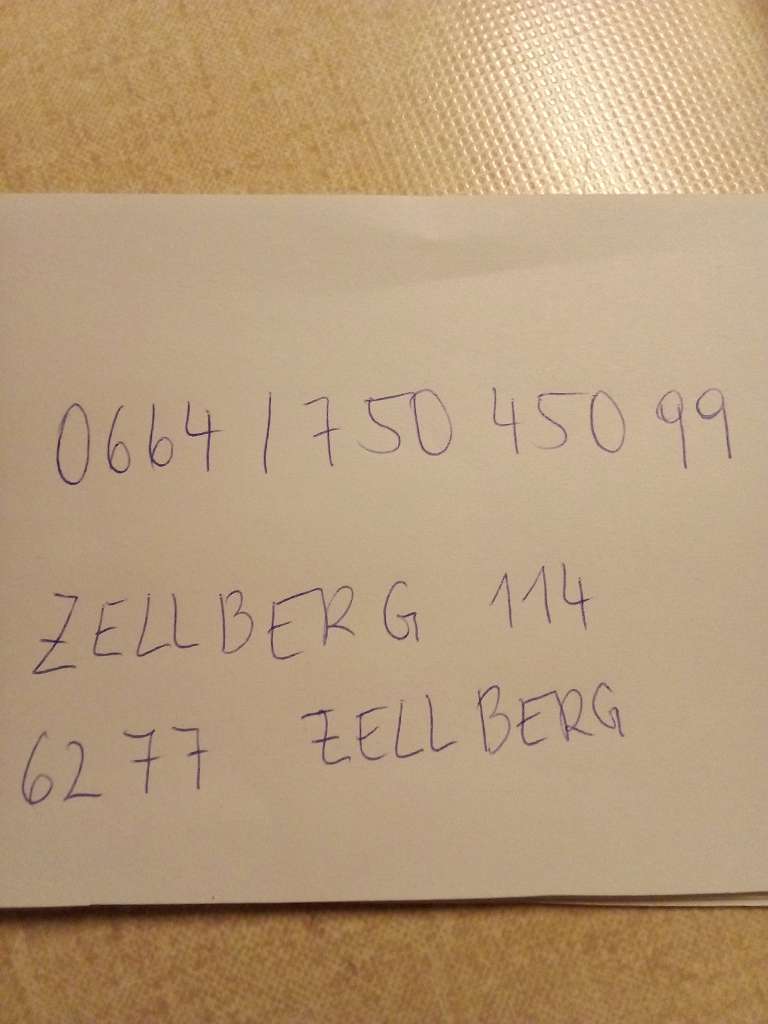 0664 / 750 450 99
ZELLBERG 114
6277 ZELLBERG